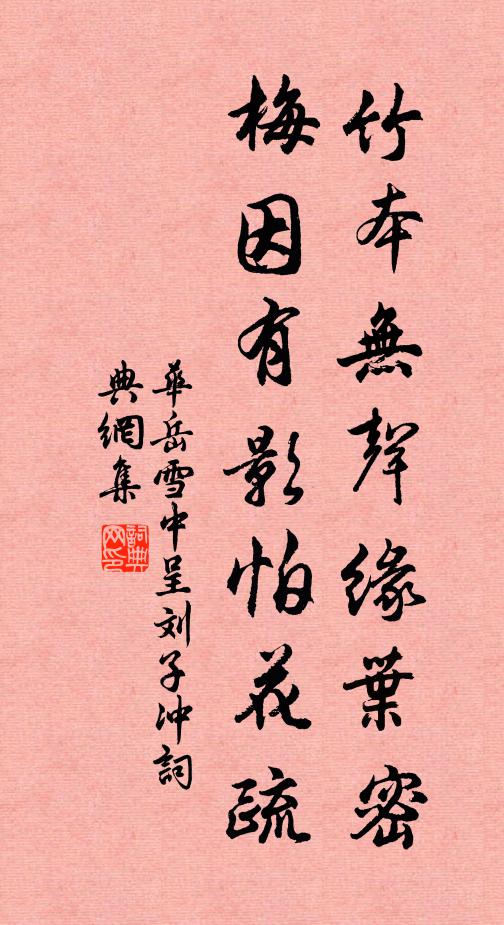 竹本無聲緣葉密
梅因有影怕花疏
華岳雪中呈刘子冲詞
典網集
詞典
网印